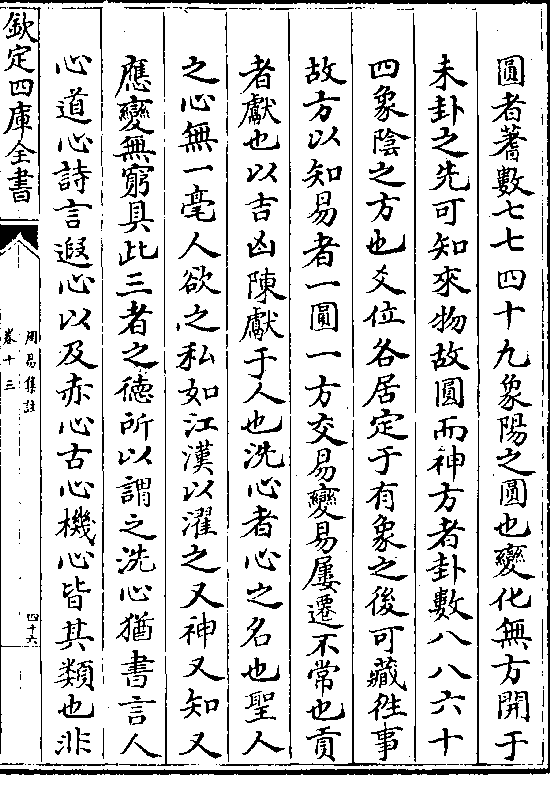 圓者蓍數七七四十九象陽之圓也變化無方開于
未卦之先可知來物故圓而神方者卦數八八六十
四象陰之方也爻位各居定于有象之後可藏往事
故方以知易者一圓一方交易變易屢遷不常也貢
者獻也以吉凶陳獻于人也洗心者心之名也聖人
之心無一毫人欲之私如江漢以濯之又神又知又
應變無窮具此三者之德所以謂之洗心猶書言人
心道心詩言遐心以及赤心古心機心皆其類也非
欽定四庫全書
周易集註
卷十三
四十六